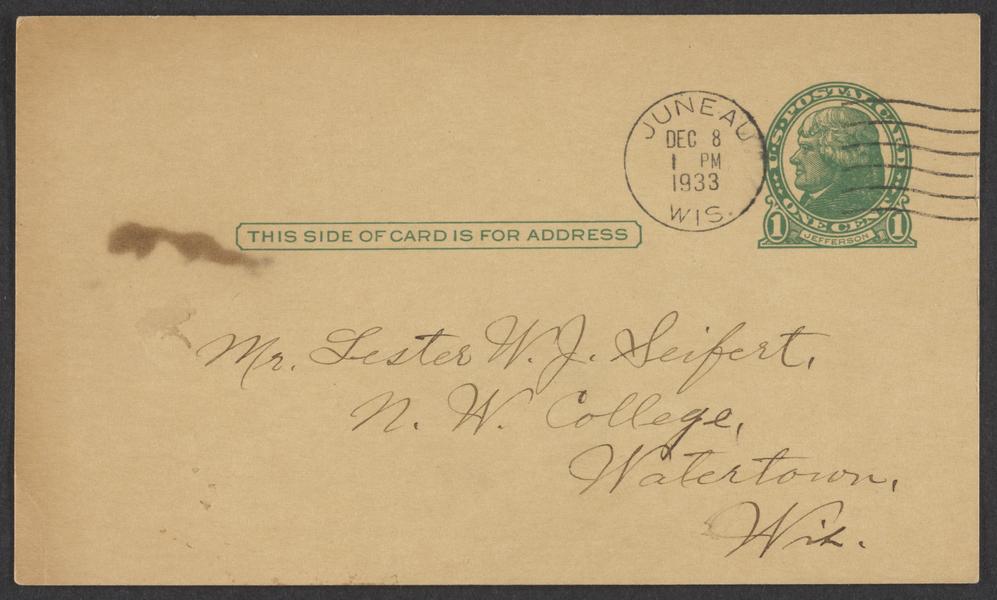 JUNEAU
DEC 8
1 PM
1933
WIS.
U.S. POSTAL CARD
ONE CENT
1 JEFFERSON 1
THIS SIDE OF CARD IS FOR ADDRESS
Mr. Lester W. J. Seifert,
N. W. College,
Watertown,
Wis.